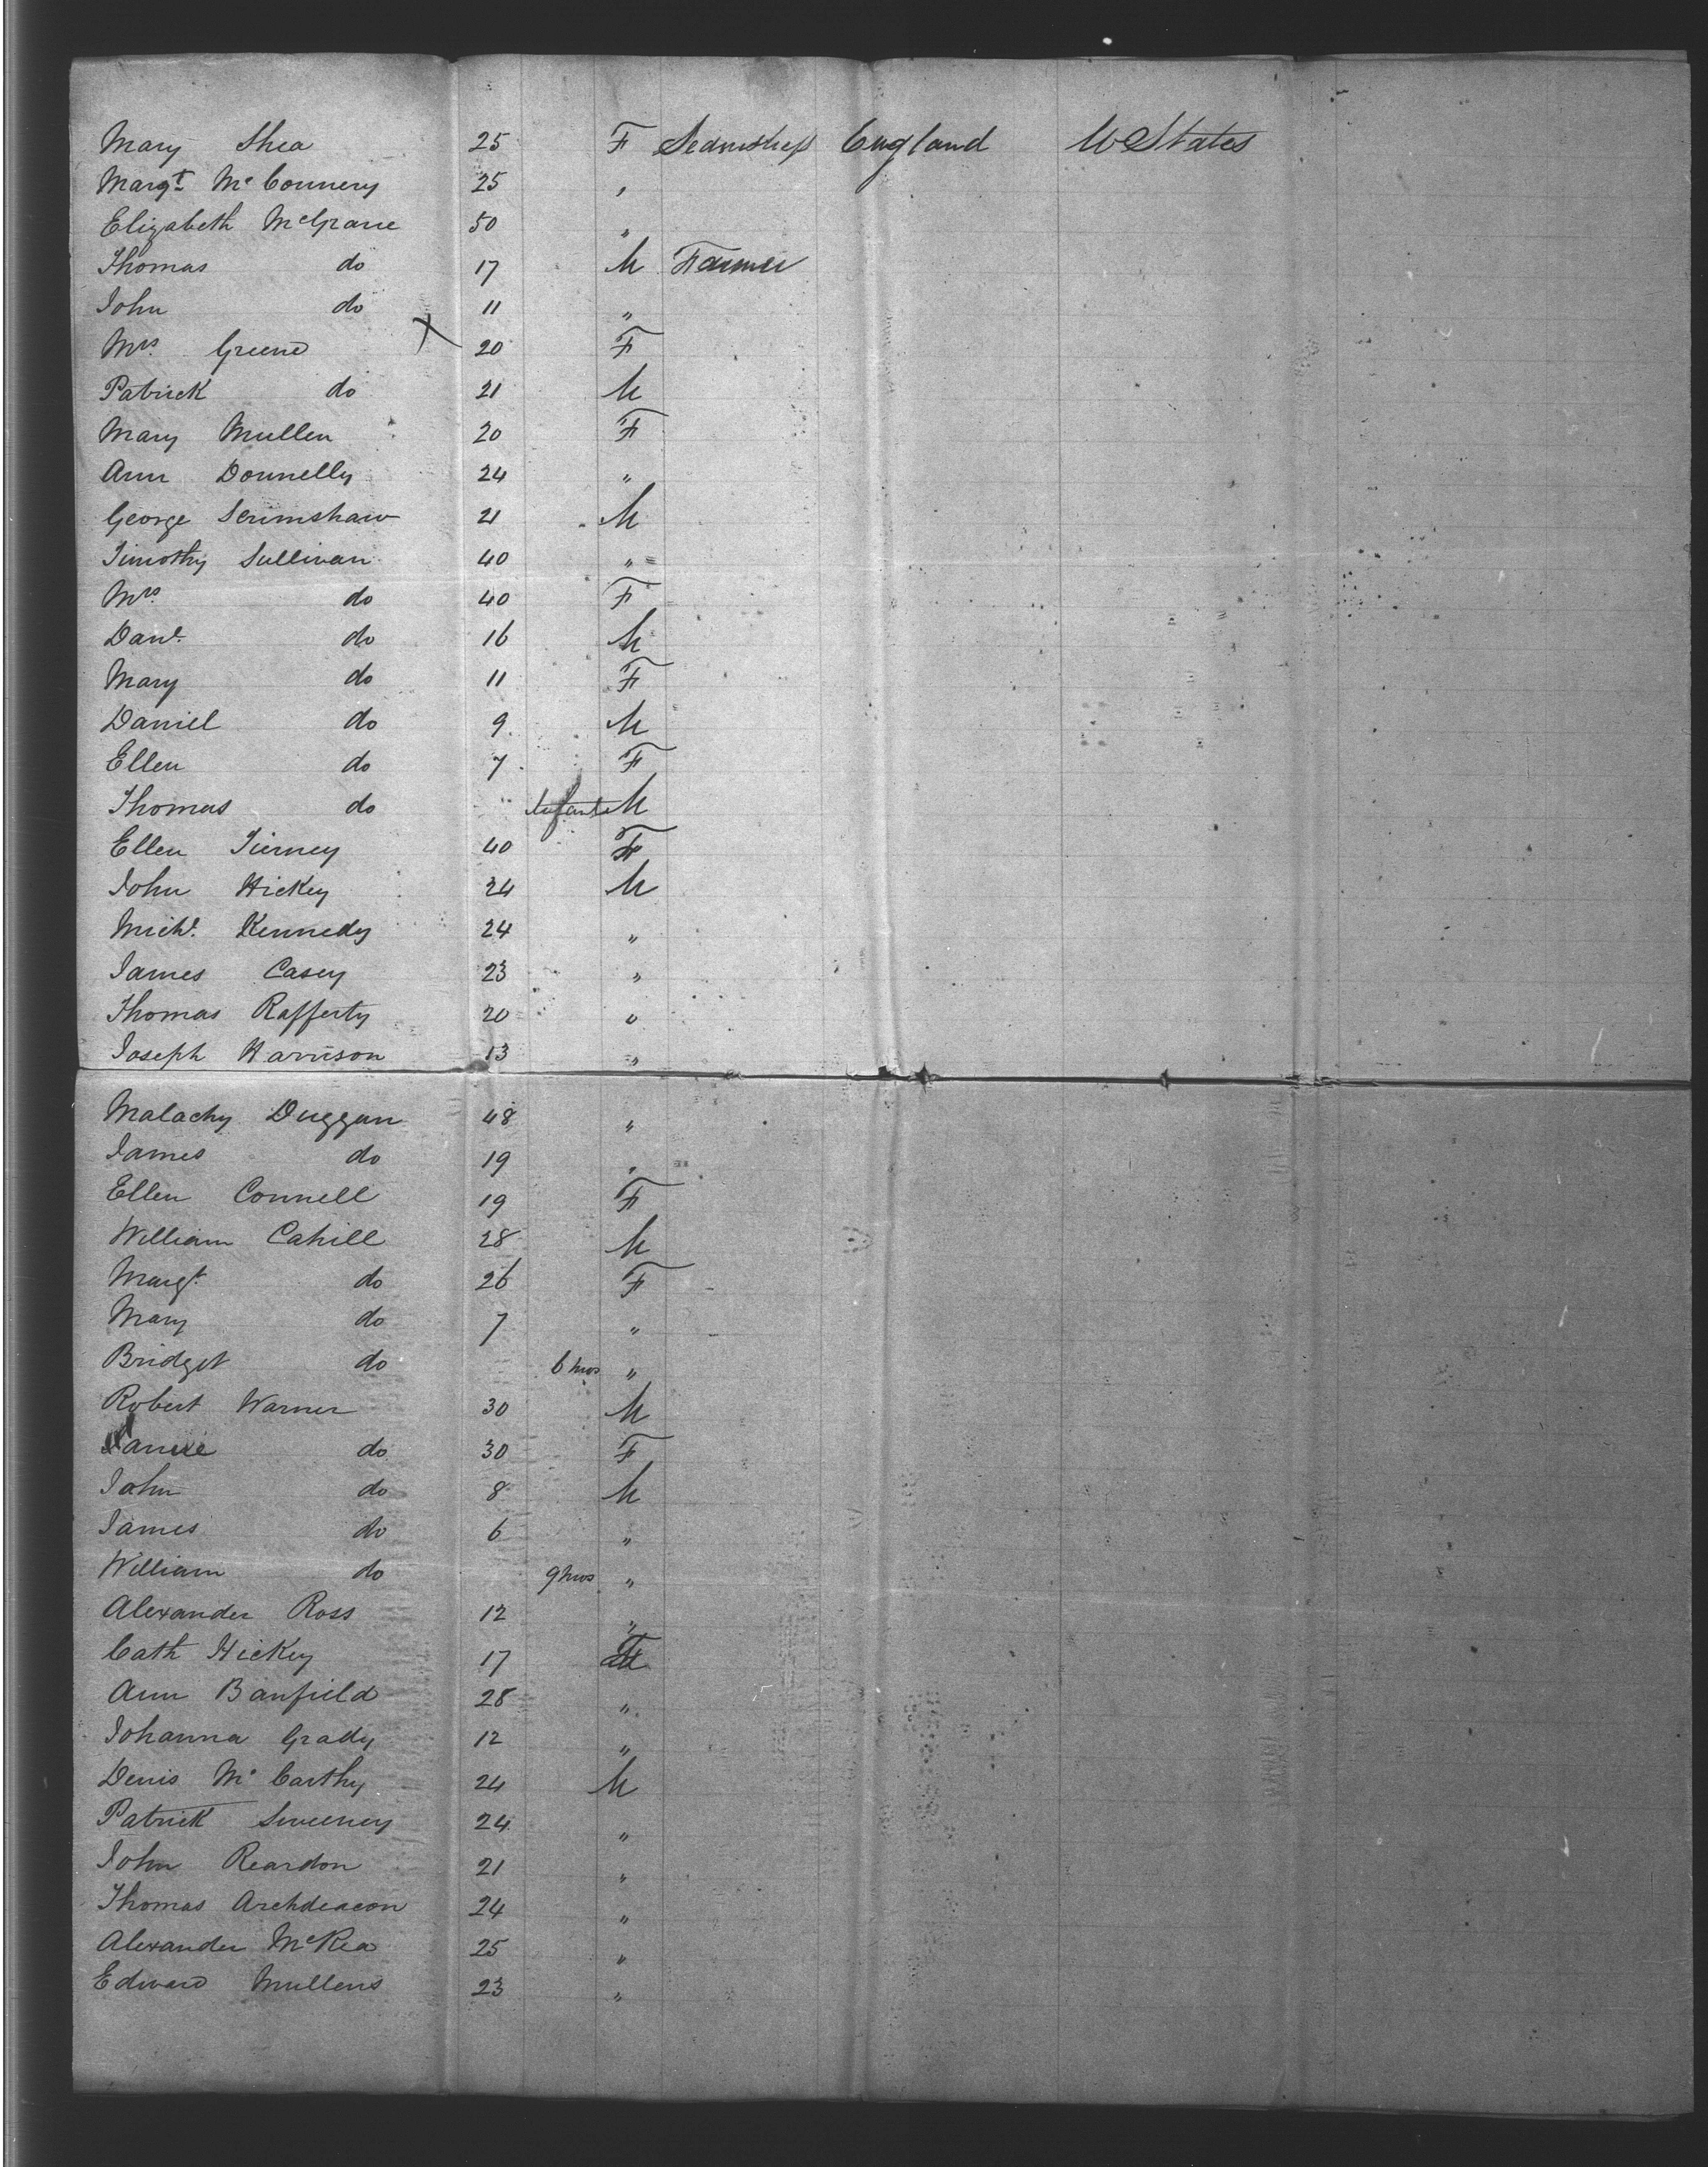 Mary Shea 25 F Seamstress England U States
Margt McConnery 25 "
Elizabeth McGrane 50 "
Thomas do 17 M Farmer
John do 11 "
Mrs Greene X 20 F
Patrick do 21 M
Mary Mullen 20 F
Ann Donnelly 24 "
George Scrimshaw 21 M
Timothy Sullivan 40 "
Mrs do 40 F
Danl do 16 M
Mary do 11 F
Daniel do 9 M
Ellen do 7 F
Thomas do Infant M
Ellen Tierney 40 F
John Hickey 24 M
Michl Kennedy 24 "
James Casey 23 "
Thomas Rafferty 20 "
Joseph Harrison 13 "
Malachy Duggan 48 "
James do 19 "
Ellen Connell 19 F
William Cahill 28 M
Margt do 26 F
Mary do 7 "
Bridget do 6 mos "
Robert Warner 30 M
do 30 F
John do 8 M
James do 6 "
William do 9 mos "
Alexander Ross 12 "
Cath Hickey 17 F
Ann Banfield 28 "
Johanna Grady 12 "
Denis McCarthy 24 M
Patrick Sweeney 24 "
John Reardon 21 "
Thomas Archdeacon 24 "
Alexander McRea 25 "
Edward Mullens 23 "